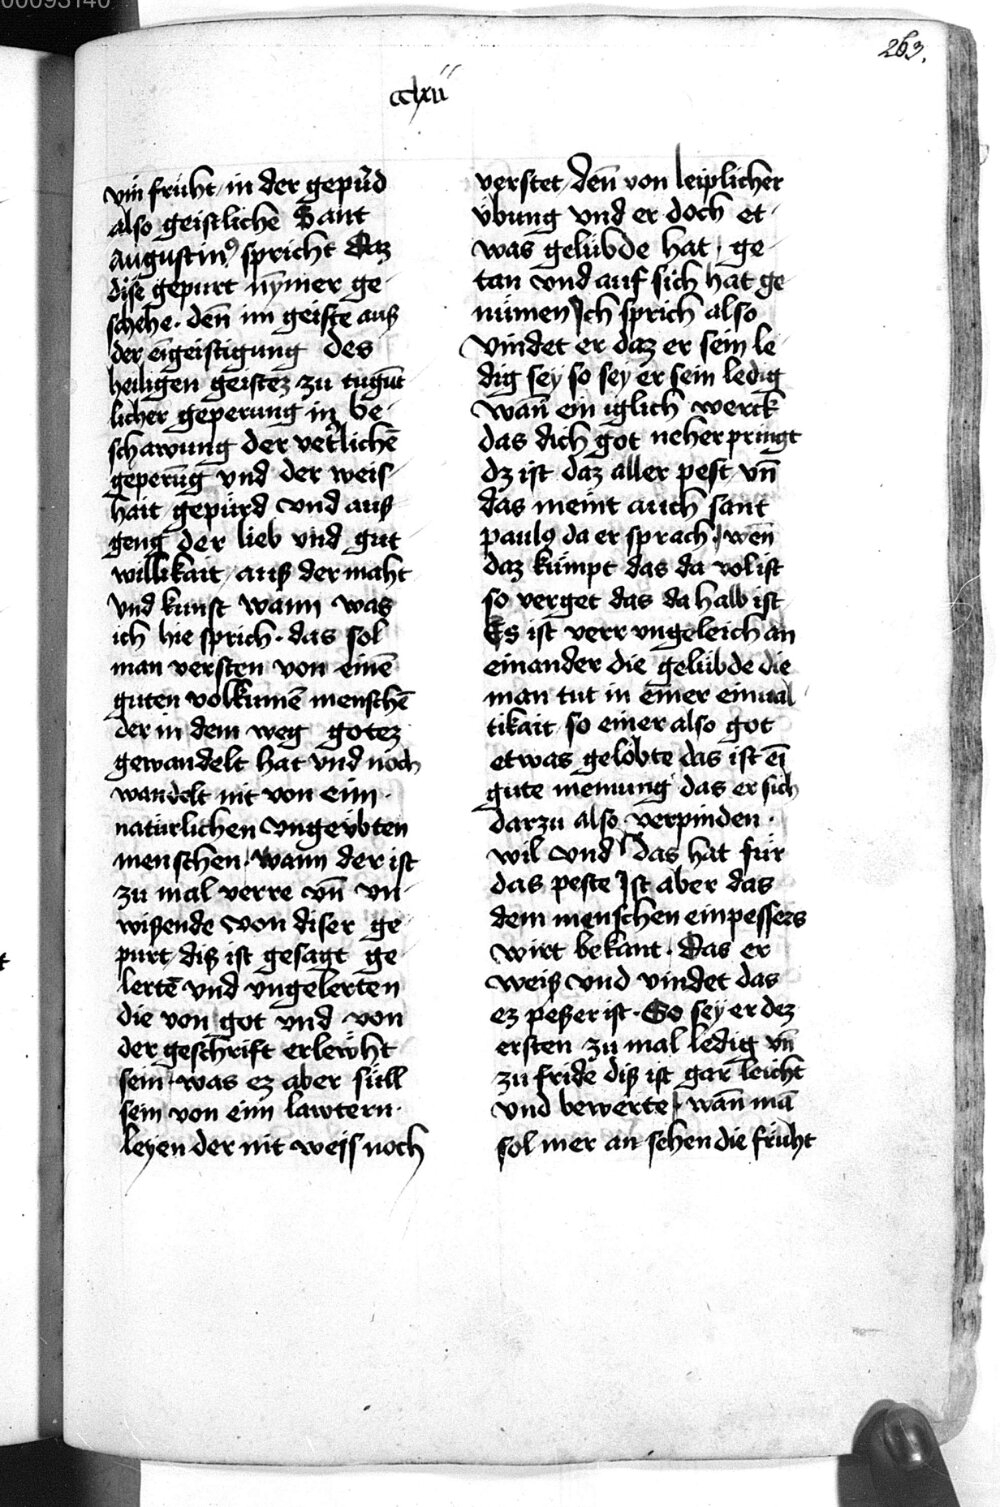 00093140
263.
cclxii
vnn früht in der gepůrd
also geistlichē Sant
augustin9 spricht Daz
dise gepurt nȳmer ge
schehe. den̄ im geiste auß
der eīgeistigung des
heiligen geistez zu tugūt
licher geperung inz be
schawung der vet̓lichē
geperūg vnd der weis
hait gepürd vnd auß
geng der lieb vnd gut
willikait auß der maht
vnd kunst wann was
ich hie sprich. das sol
man versten von einē
guten volkumē menschē
der in dem weg gotez
gewandelt hat vnd noch
wandelt nit von eim
natürlichen vngeübten
menschen wann der ist
zu mal verre vn̄ vn
wißende von diser ge
purt diß ist gesagt ge
lertē vnd vngelerten
die von got vnd von
der geschrift erlewht
sein was ez aber süll
sein von eim lawtern
leyen der nit weis noch
verstet den̄ von leiplicher
übung vnd er doch et
was gelübde hat ge
tan vnd auf sich hat ge
nümen Ich sprich also
Vindet er daz er sein le
dig sey so sey er sein ledig
Wan̄ ein iglich werck
das dich got neher pringt
dz ist daz aller pest vn̄
das meint auch sant
paul9 da er sprach wen̄
daz kümpt das da vol ist
so verget das da halb ist
Es ist verr vngeleich an
einander die gelübde die
man tut in einer einual
tikait so einer also got
etwas gelobte das ist eī
gute meinung das er sich
darzu also verpinden
wil vnd das hat für
das peste Ist aber das
dem menschen ein pessers
wirt bekant. Das er
weiß vnd vindet das
ez peßer ist. So sey er dez
ersten zu mal ledig vn̄
zu fride diß ist gar leicht
vnd bewerte wan̄ mā
sol mer an sehen die früht